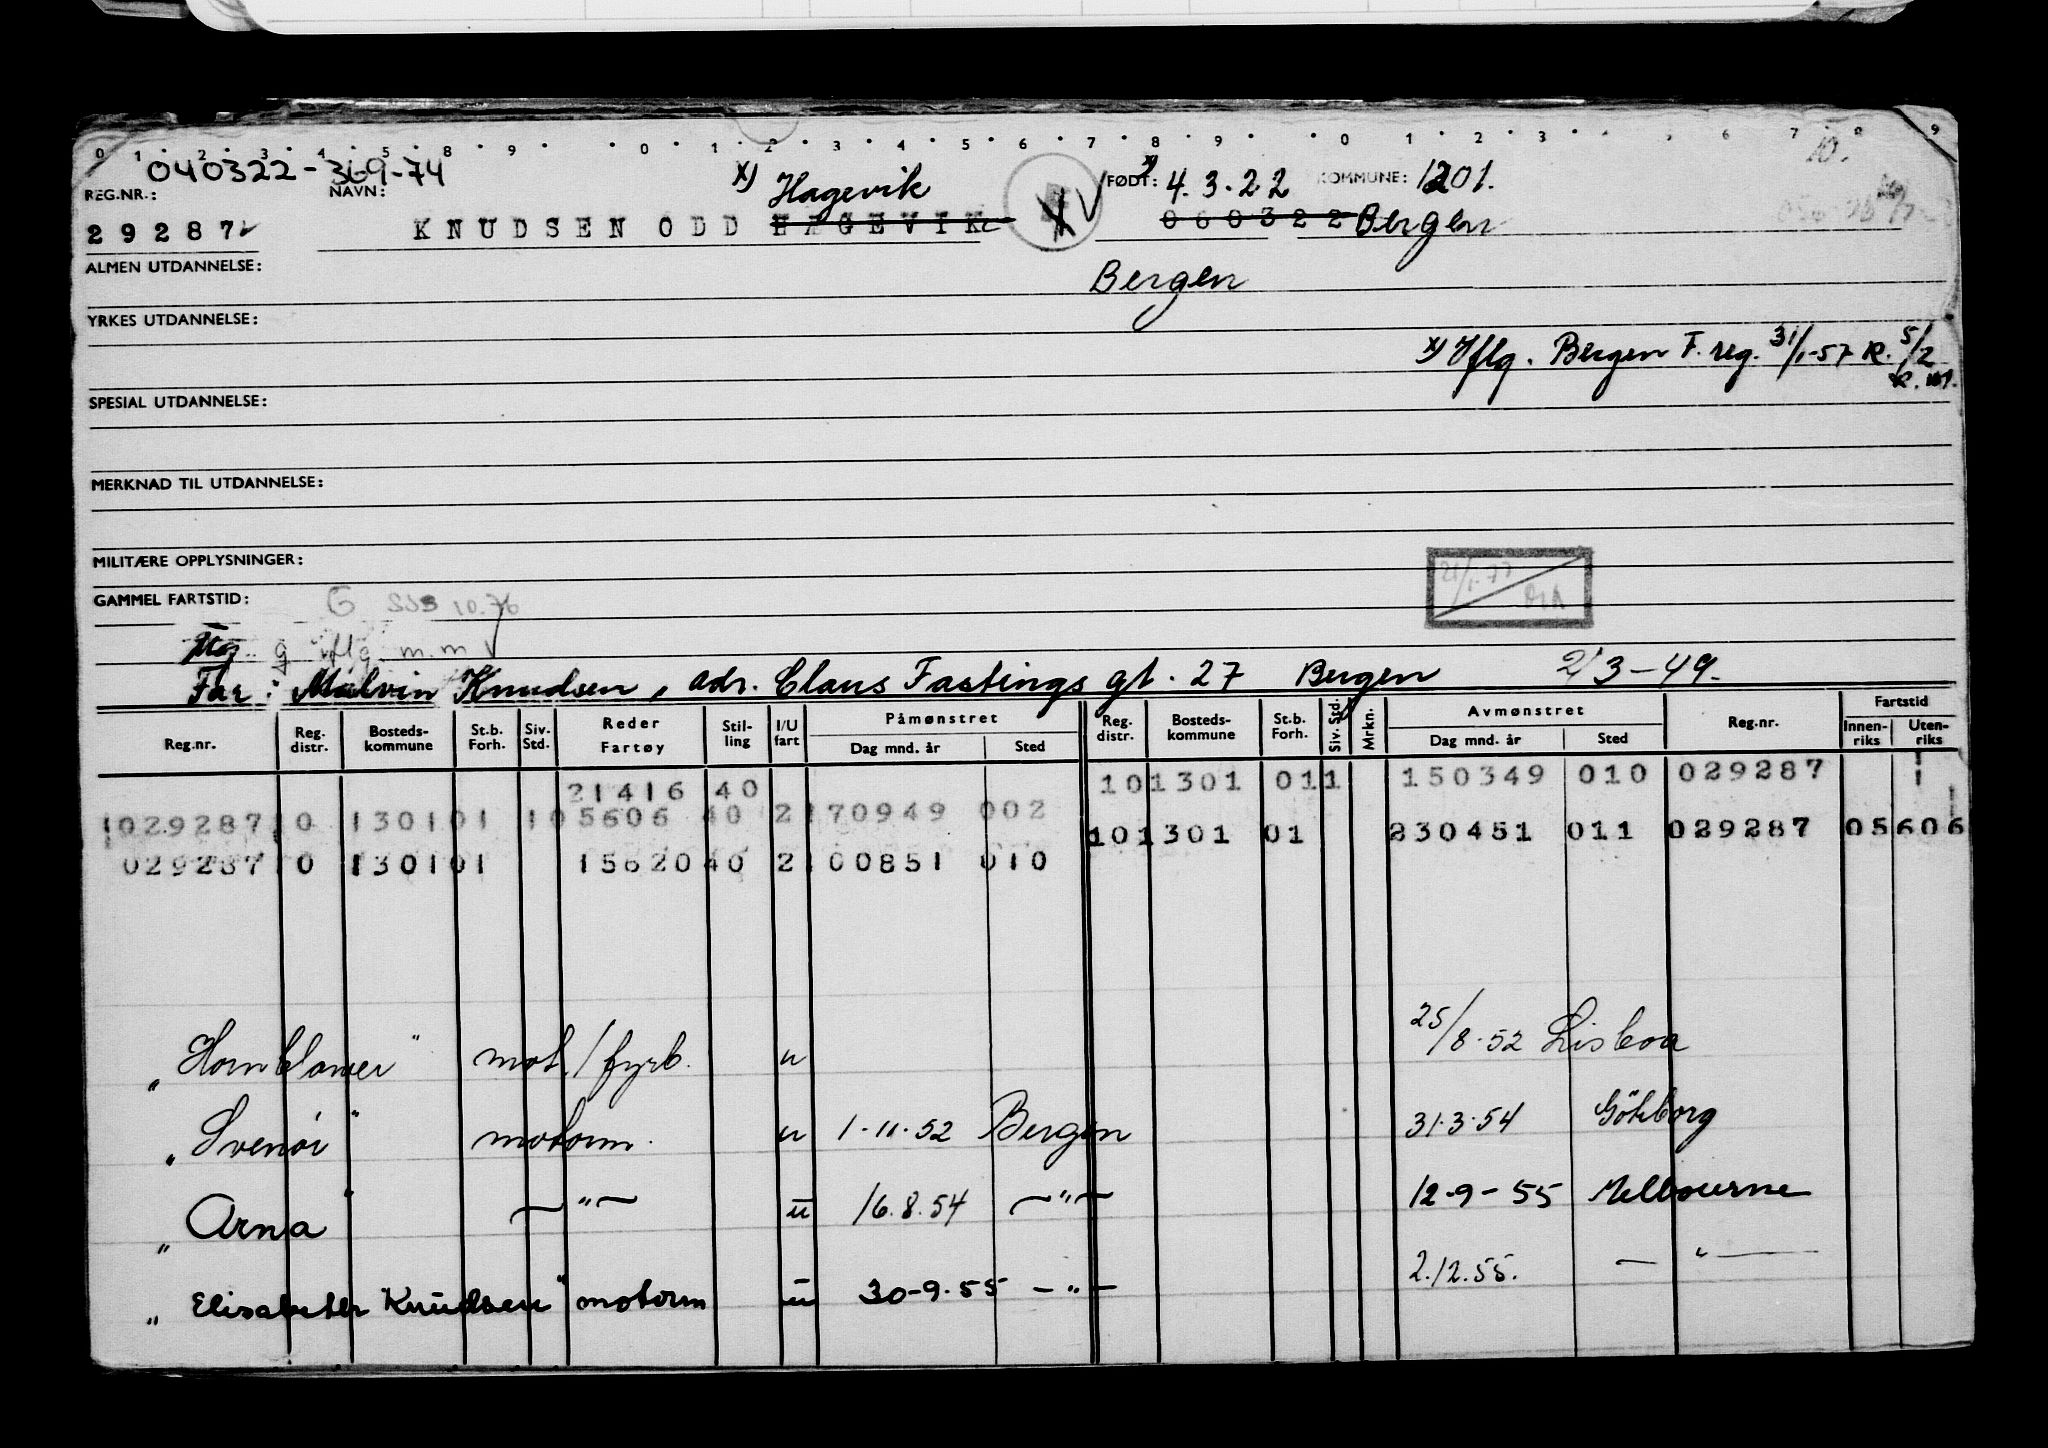 0 1 2 3 4 5 8 9 0 1 2 3 4 5 6 7 8 9 0 1 2 3 6 7 8 9
040322-369-74
10.
REG.NR.: NAVN: x) Hagevik FØDT: x) 4.3.22 KOMMUNE: 1201.
29287 KNUDSEN ODD HAGEVIK 060322 Bergen
ALMEN UTDANNELSE: Bergen
YRKES UTDANNELSE:
x) Iflg. Bergen F.reg. 31/1-57 R. 5/2
SPESIAL UTDANNELSE:
MERKNAD TIL UTDANNELSE:
MILITÆRE OPPLYSNINGER:
21/1-77
GAMMEL FARTSTID: G SSB 10.76
m.m
Far: Malvin Knudsen, adr. Claus Fastings gt. 27 Bergen 2/3-49.
Reg.nr. Reg. distr. Bosteds-kommune St.b. Forh. Siv. Std. Reder Fartøy Stil-ling I/U fart Påmønstret Dag mnd. år Sted Reg. distr. Bosteds-kommune St.b. Forh. Siv. Std. Mrkn. Avmønstret Dag mnd. år Sted Reg.nr. Fartstid Innen-riks Uten-riks
21416 40 10 1301 011 150349 010 029287
029287 0 1301 01 1 05606 40 2 170949 002 10 1301 01 230451 011 029287 05606
029287 0 1301 01 15620 40 2 100851 010
"Hornblower" mot./fyrb. u 25/8.52 Lisboa
"Svenør" motorm. u 1.11.52 Bergen 31.3.54 Göteborg
"Arna" —"— u 16.8.54 —"— 12-9-55 Melbourne
"Elisabeth Knudsen" motorm u 30-9.55 —"— 2.12.55. —"—